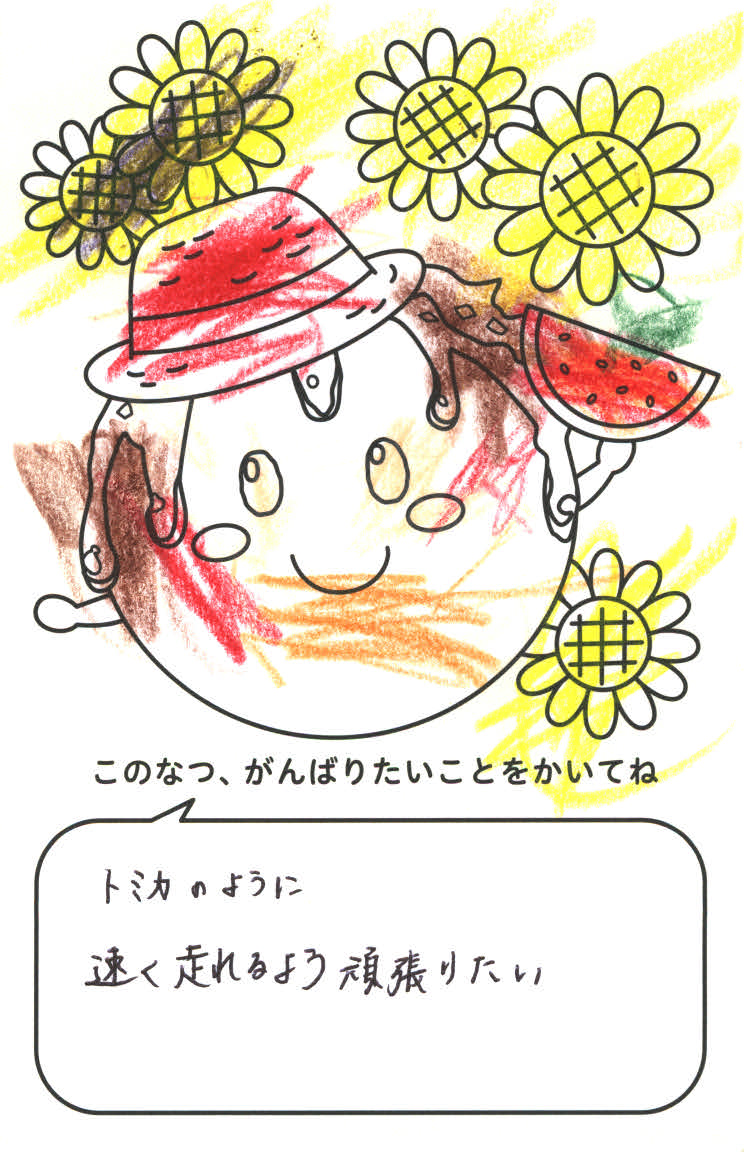 このなつ、がんばりたいことをかいてね
トミカのように
速く走れるよう頑張りたい